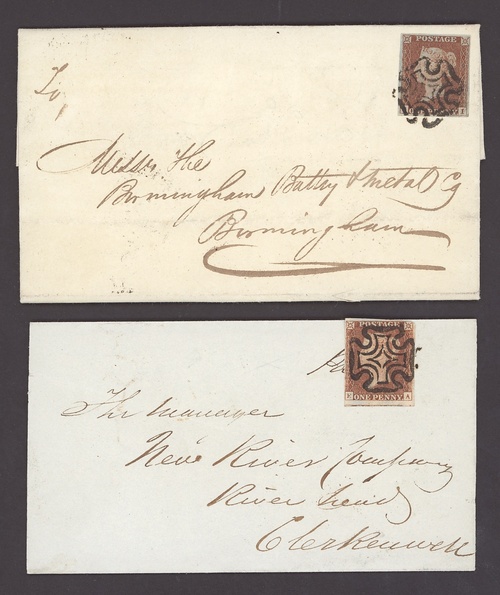 POSTAGE
To
Messrs The
Birmingham Battry & Metal Co
Birmingham
POSTAGE
ONE PENNY
A
The Manager
New River Company
River Head
Clerkenwell